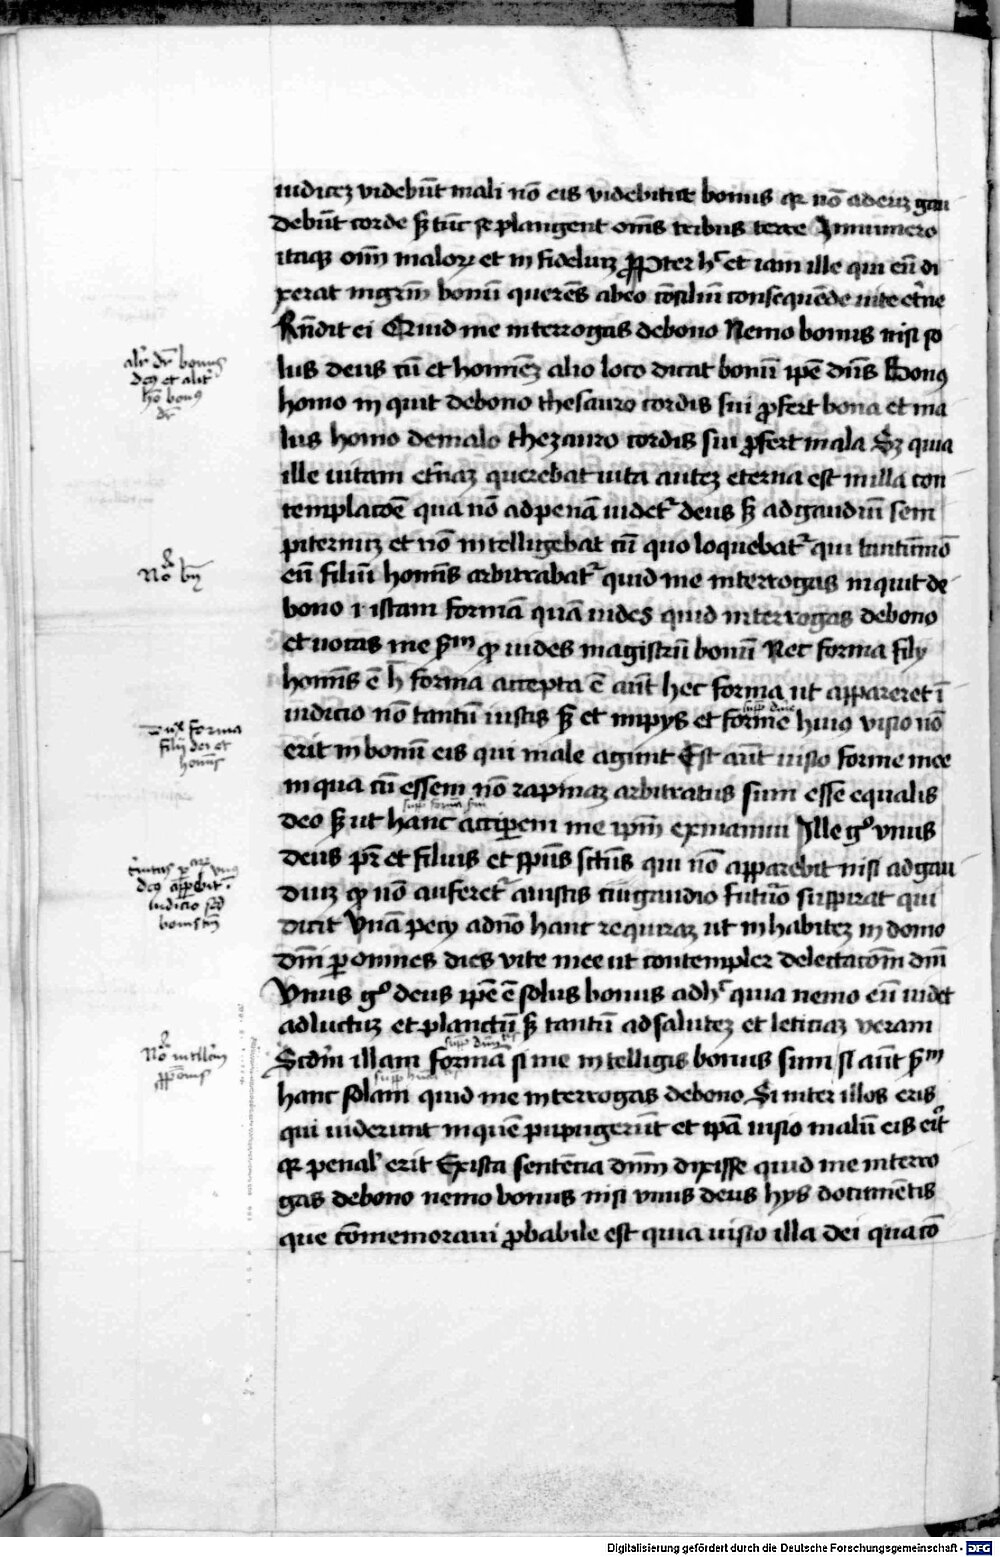 iudicez videbūt mali nō eis videbitur bonus qr nō ad euz gau
debūt corde sz tūc se plangent om̄s tribus terre In numero
itaqz om̄ malorz et infideliuz propter hͨ et iam ille qui eū di
xerat mgr̄m bonū querēs ab eo cōsiliū consequēde vite et̄ne
Rn̄dit ei Quid me interrogas de bono Nemo bonus nisi so
lus deus cū et hominez alio loco dicat bonū ipē dn̄s Bonus
homo inquit de bono thesauro cordis sui profert bona et ma
lus homo de malo thezauro cordis sui profert mala Sz quia
ille uitam et̄naz querebat uita autez eterna est in illa con
templacōe qua nō ad penā uidetr deus sz ad gaudiū sem
piternuz et nō intelligebat cū quo loquebatr qui tantūmō
eū filiū hominis arbitrabatr quid me interrogas inquit de
bono i istam formā quā uides quid interrogas de bono
et uocas me scdm qd uides magistrū bonū Nec forma filij
hominis ē hec forma accepta ē aūt hec forma ut appareret ī
iudicio nō tantū iustis sz et impijs et forme huius visio nō
erit in bonū eis qui male agunt Est aūt uisio forme mee
in qua cū essem nō rapinaz arbitratus sum esse equalis
deo sz ut hanc acciperem me ipm exinaniui Ille gͦ vnus
deus pr̄ et filius et spūs sctūs qui nō apparebit nisi ad gau
diuz qd nō auferetr a iustis cui gaudio futuro suspirat qui
dicit Vnā pecij a dno hanc requiraz ut inhabitez in domo
dn̄i per omnes dies vite mee ut contempler delectacōm dn̄i
Vnus gͦ deus ipē ē solus bonus ad hͨ quia nemo eū uidet
ad luctuz et planctū sz tantū ad salutez et leticiaz veram
Scdm illam forma si me intelligis bonus sum si aūt scdm
hanc solam quid me interrogas de bono Si inter illos eris
qui uiderunt in quē pupugerūt et ipā uisio malū eis erit
qr penalis erit Ex ista sentēcia dn̄m dixisse quid me interro
gas de bono nemo bonus nisi vnus deus hijs documētis
que cōmemoraui probabile est quia uisio illa dei qua cō
alr dr bonus
deus et alitr
hō bonus
dr
No bn
forma
filij dei et
hominis
deus apparebit
iudicio sed
bonis tm
No intllm
Digitalisierung gefördert durch die Deutsche Forschungsgemeinschaft - DFG